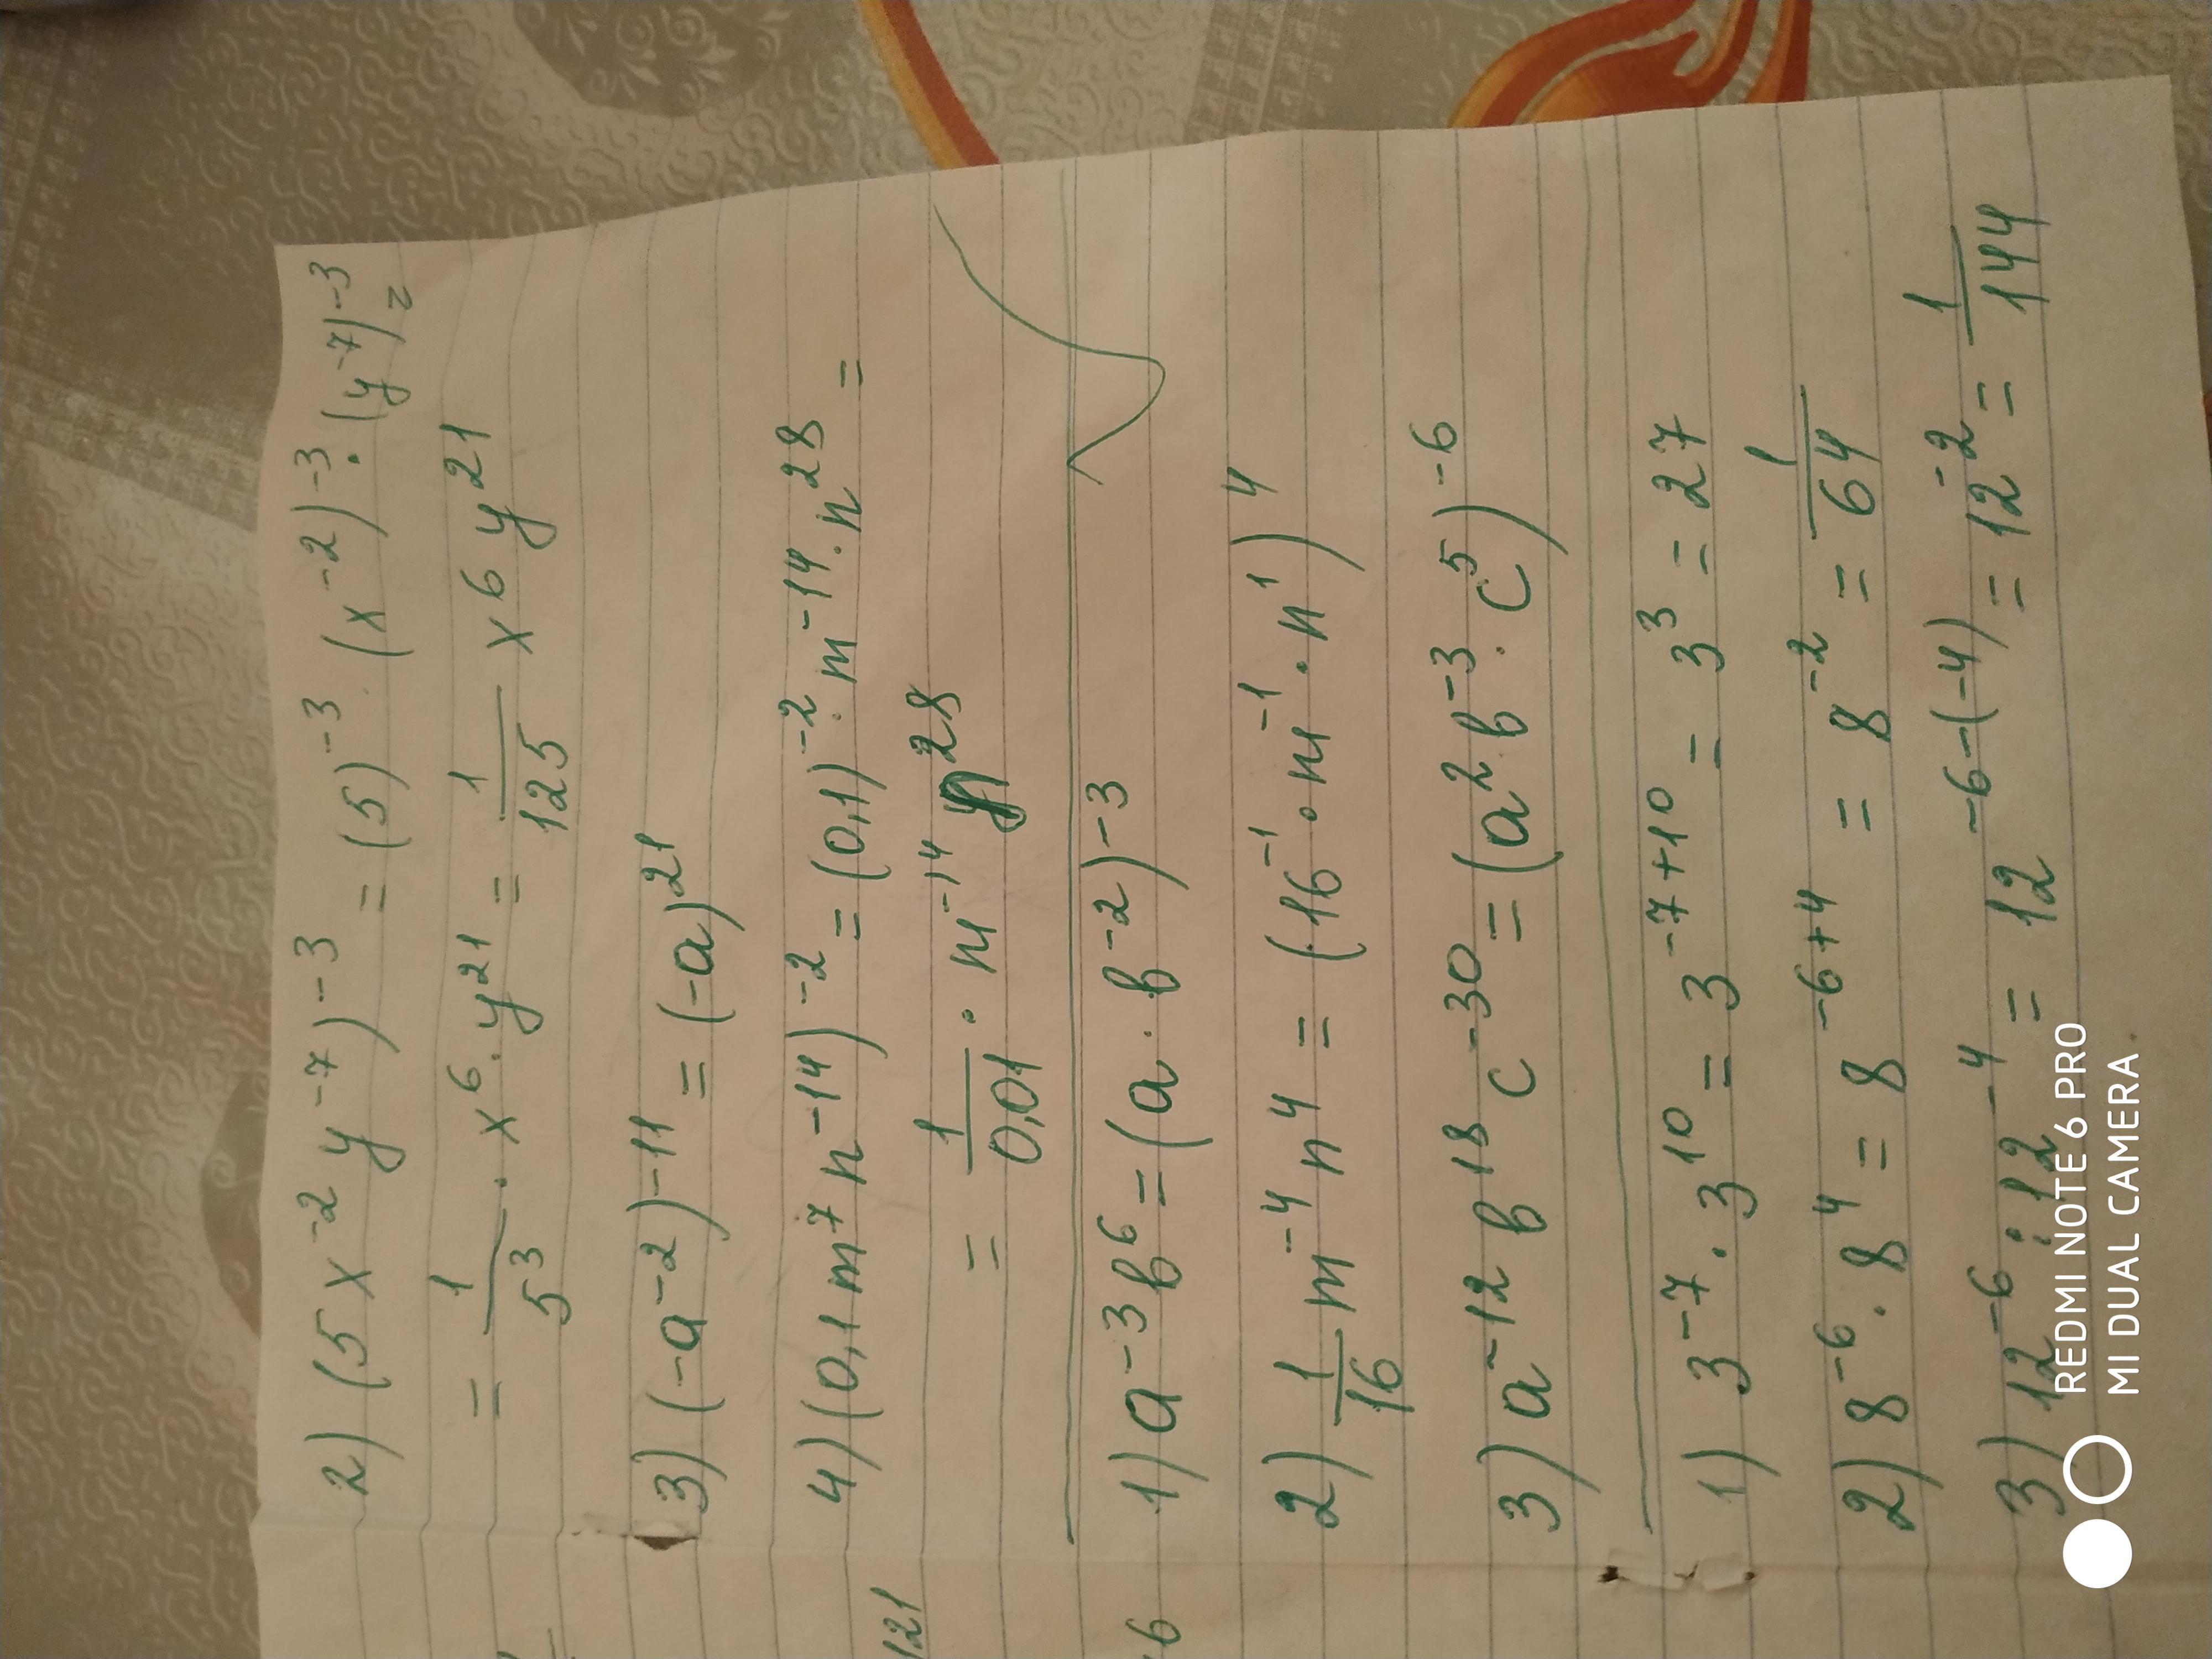 2) (5x⁻²y⁻⁷)⁻³ = (5)⁻³ · (x⁻²)⁻³ · (y⁻⁷)⁻³ =
= 1/5³ · x⁶ · y²¹ = 1/125 x⁶ y²¹
3) (-a⁻²)⁻¹¹ = (-a)²¹
4) (0,1 m⁷ n⁻¹⁴)⁻² = (0,1)⁻² · m⁻¹⁴ · n²⁸ =
= 1/0,01 · m⁻¹⁴ n²⁸
121
1) a⁻³ в⁶ = (a · в⁻²)⁻³
6
2) 1/16 m⁻⁴ n⁴ = (16⁻¹ · m⁻¹ · n¹)⁴
3) a⁻¹² в¹⁸ c⁻³⁰ = (a² в⁻³ · c⁵)⁻⁶
1) 3⁻⁷ · 3¹⁰ = 3⁻⁷⁺¹⁰ = 3³ = 27
2) 8⁻⁶ · 8⁴ = 8⁻⁶⁺⁴ = 8⁻² = 1/64
3) 12⁻⁶ : 12⁻⁴ = 12⁻⁶⁻⁽⁻⁴⁾ = 12⁻² = 1/144
REDMI NOTE 6 PRO
MI DUAL CAMERA